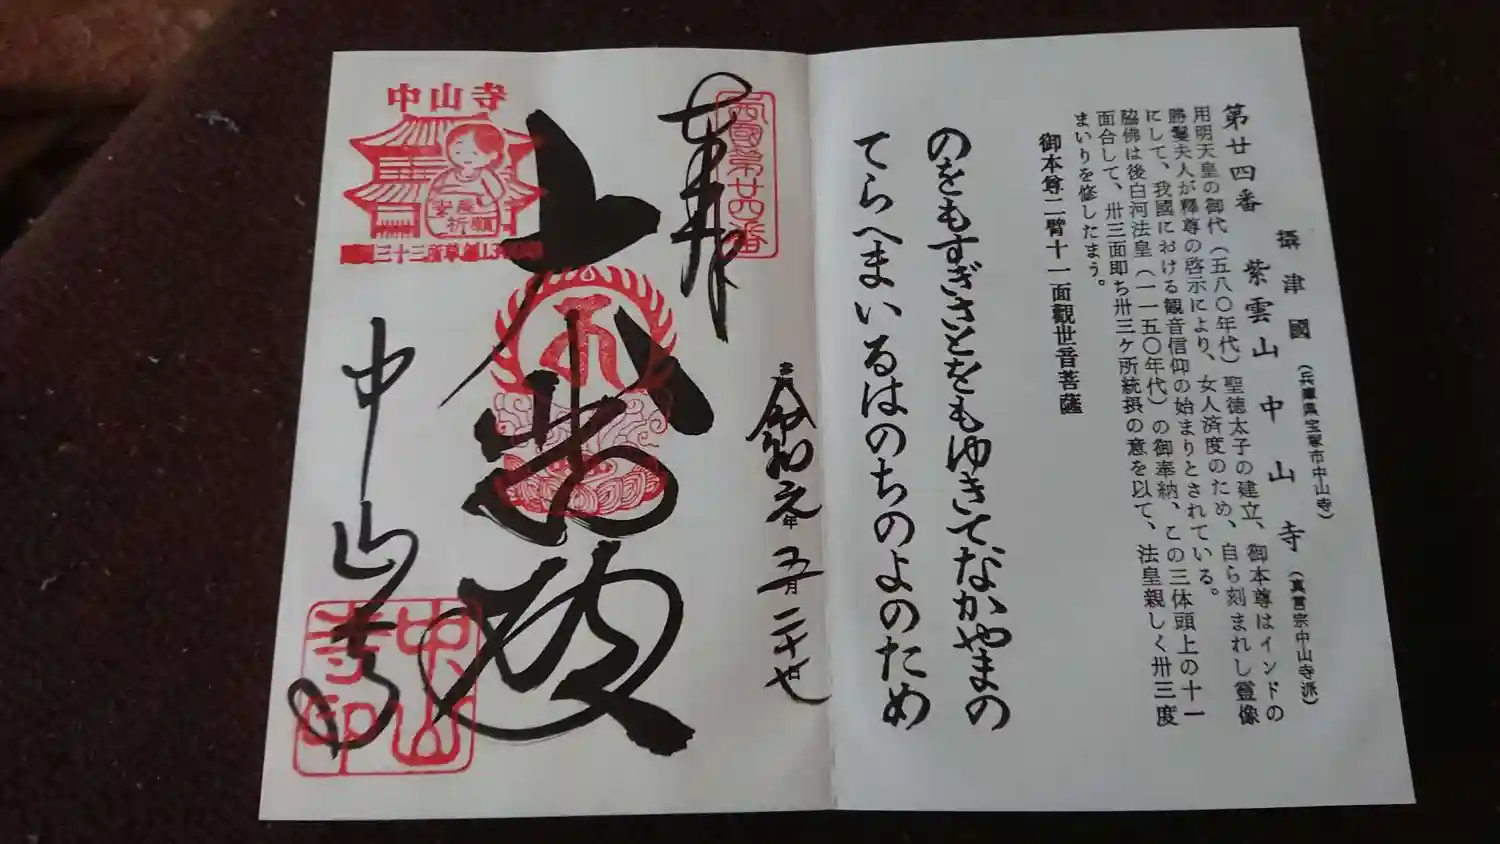 第廿四番
攝津國(兵庫県宝塚市中山寺)
紫雲山中山寺(真言宗中山寺派)
用明天皇の御代(五八〇年代)聖徳太子の建立、御本尊はインドの
勝鬘夫人が釋尊の啓示により、女人済度のため、自ら刻まれし靈像
にして、我國における観音信仰の始まりとされている。
脇佛は後白河法皇(一一五〇年代)の御奉納、この三体頭上の十一
面合して、卅三面即ち卅三ケ所統摂の意を以て、法皇親しく卅三度
まいりを修したまう。
御本尊二臂十一面觀世音菩薩
のをもすぎさとをもゆきてなかやまの
てらへまいるはのちのよのため
西國第廿四番
奉拝
令和元年五月二十七日
大悲殿
中山寺
中山寺
安産
祈願
三十三所草創1300年
中山寺印